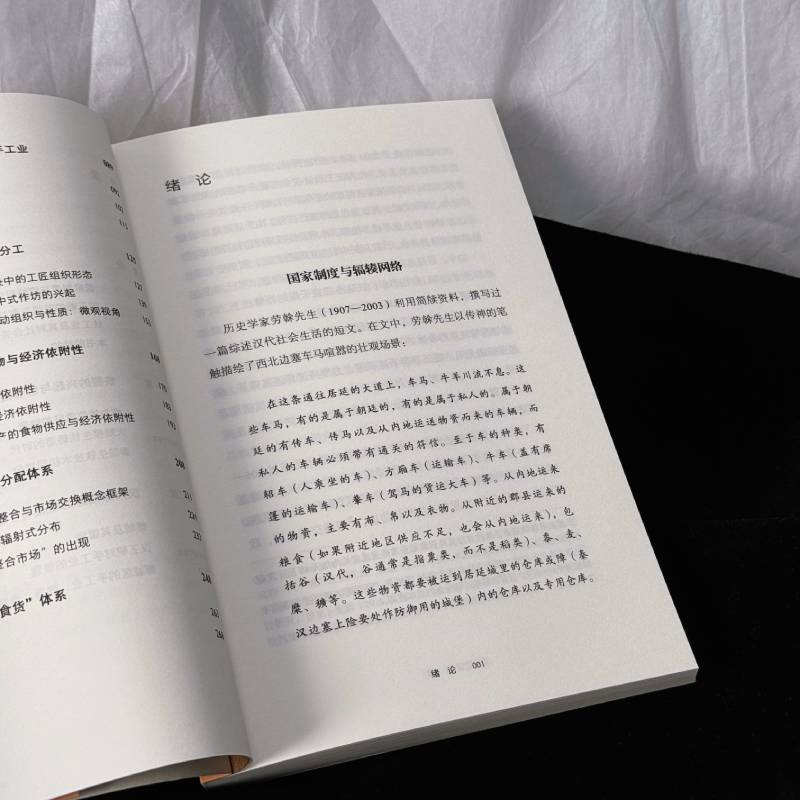 手工业
089
097
102
115
分工
126
中的工匠组织形态
127
中式作坊的兴起
139
动组织与性质：微观视角
153
物与经济依附性
168
依附性
170
经济依附性
185
产的食物供应与经济依附性
193
分配体系
208
整合与市场交换概念框架
211
辐射式分布
224
整合市场”的出现
237
食货”体系
248
261
绪 论
国家制度与辐辏网络
历史学家劳榦先生（1907—2003）利用简牍资料，撰写过
一篇综述汉代社会生活的短文。在文中，劳榦先生以传神的笔
触描绘了西北边塞车马喧嚣的壮观场景：
在这条通往居延的大道上，车马、牛羊川流不息。这
些车马，有的是属于朝廷的，有的是属于私人的。属于朝
廷的有传车、传马以及从内地运送物资而来的车辆，而
私人的车辆必须带有通关的符信。至于车的种类，有
轺车（人乘坐的车）、方厢车（运输车）、牛车（盖有席
篷的运输车）、輂车（驾马的货运大车）等。从内地运来
的物资，主要有布、帛以及衣物。从附近的郡县运来的
粮食（如果附近地区供应不足，也会从内地运来），包
括谷（汉代，谷通常是指粟类，而不是稻类）、黍、麦、
糜、穬等。这些物资都要被运到居延城里的仓库或障（秦
汉边塞上险要处作防御用的城堡）内的仓库以及专用仓库。
绪 论 001